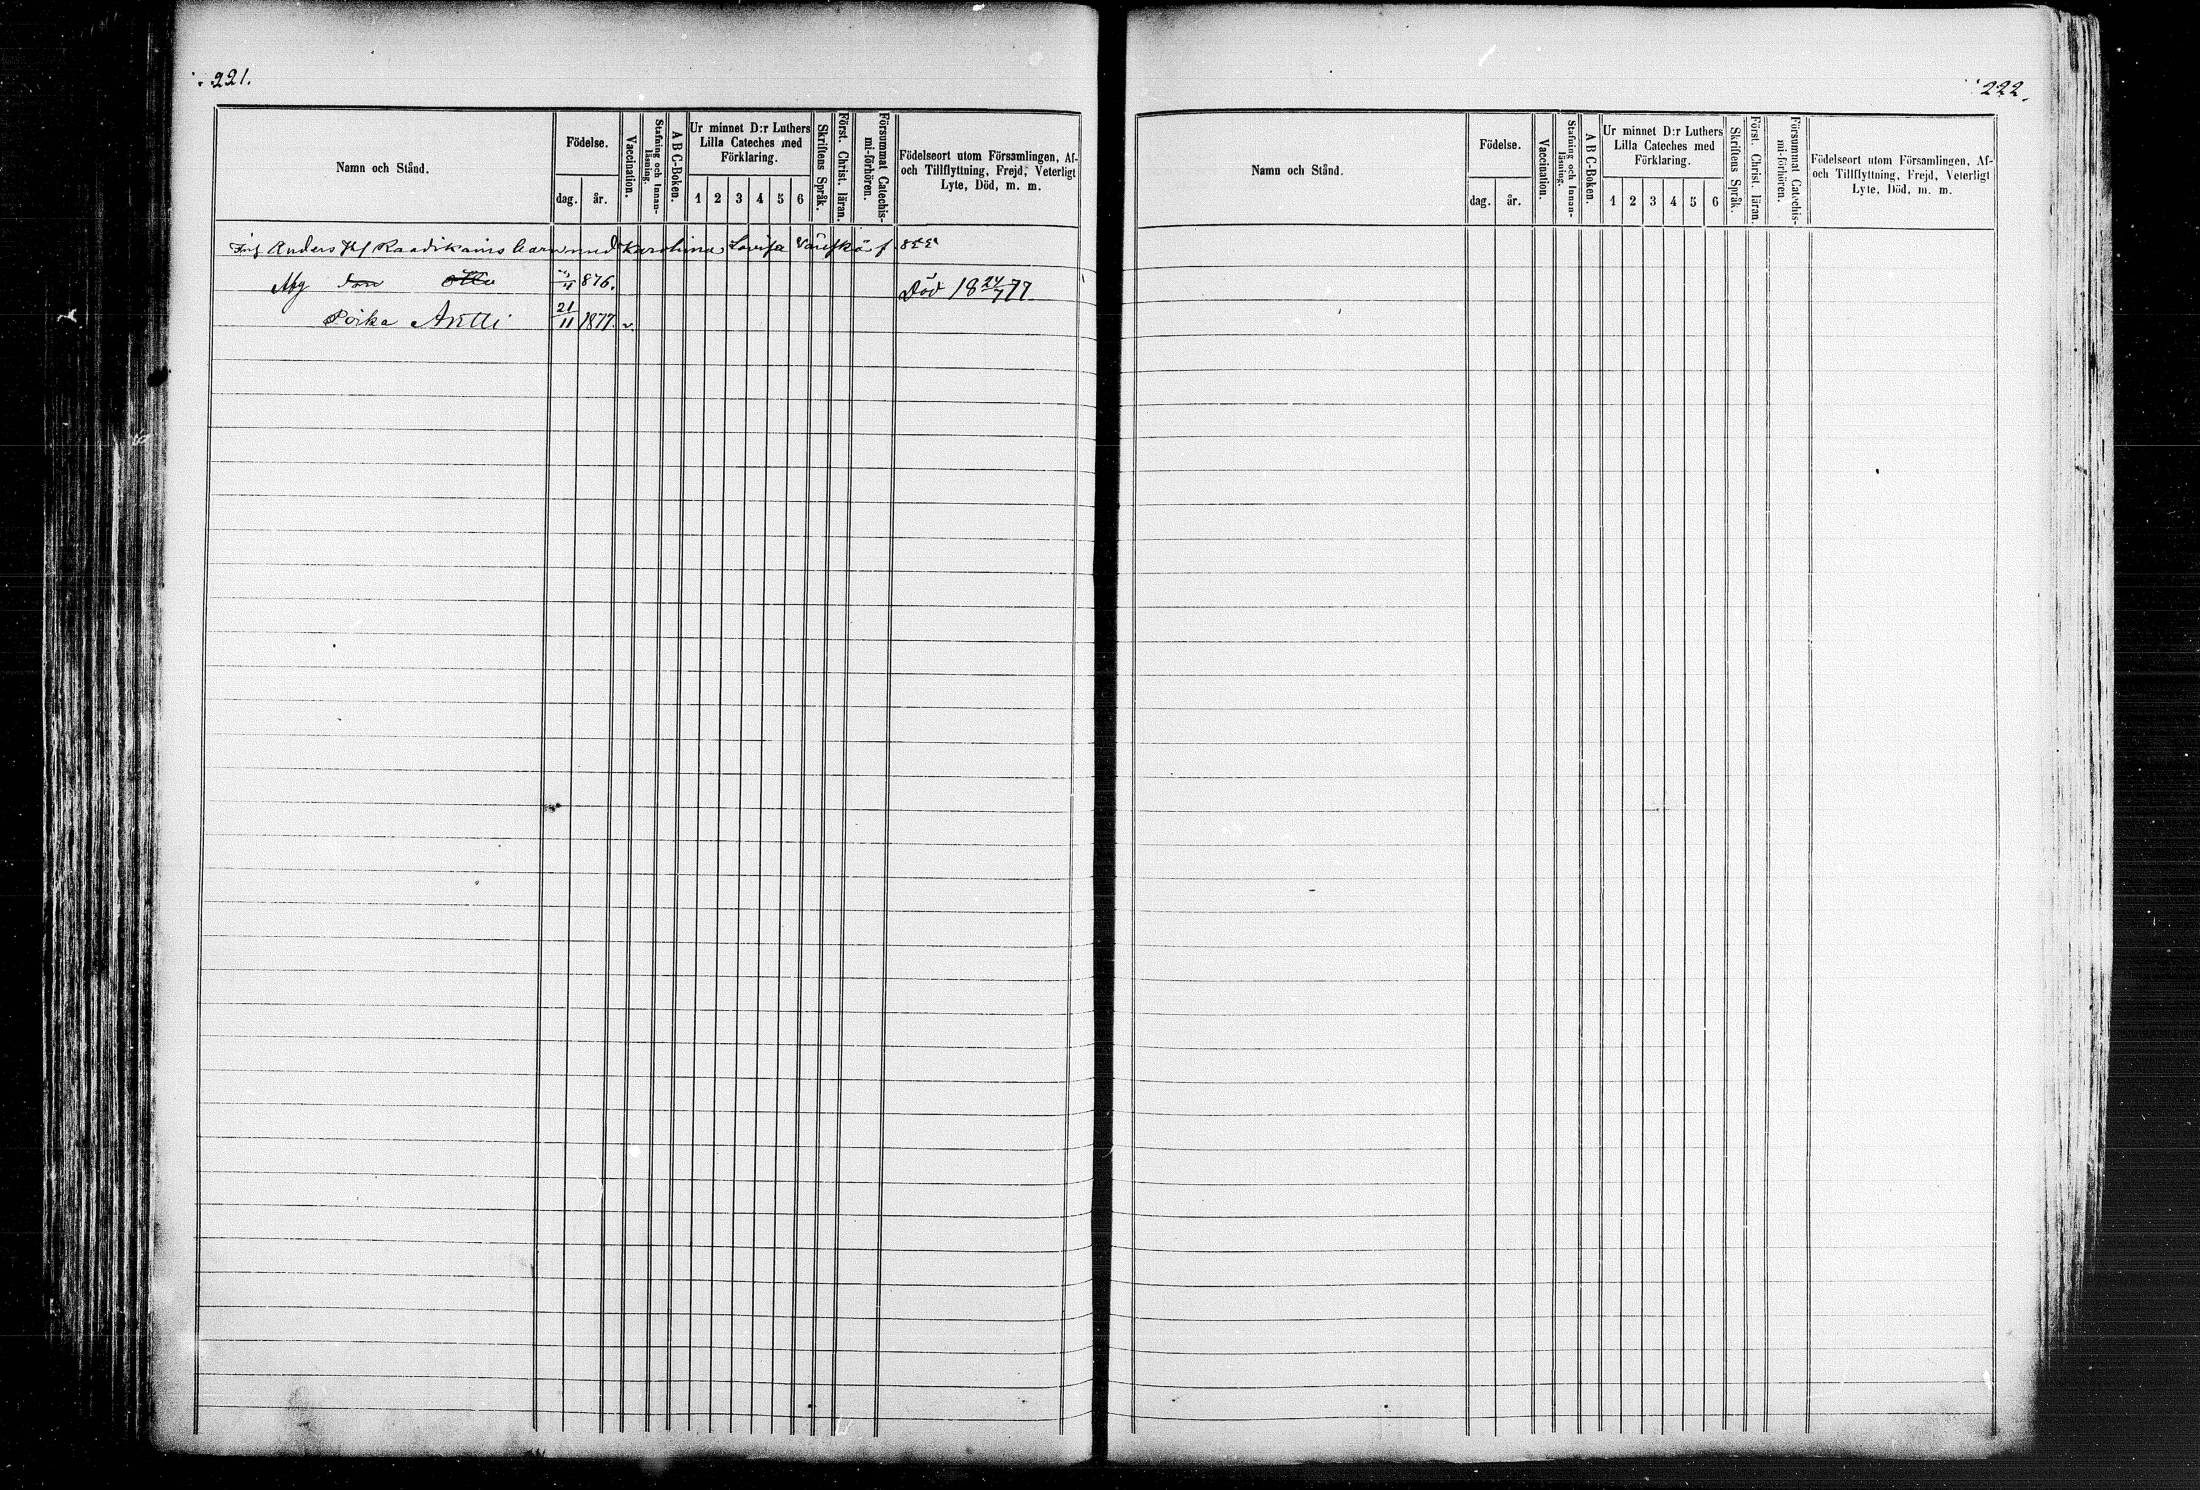 221.
Namn och Stånd.
Födelse.
dag.
år.
Vaccination.
Stafning och Innan-
läsning.
A B C-Boken.
Ur minnet D:r Luthers
Lilla Cateches med
Förklaring.
1 2 3 4 5 6
Skriftens Språk.
Först. Christ. läran.
Försummat Catechis-
mi-förhören.
Födelseort utom Församlingen, Af-
och Tillflyttning, Frejd, Veterligt
Lyte, Död, m. m.
Anders Raadikains barn med Karolina Lovisa
876. Död 18 24/7 77
Poika Antti 21/11 1877. v.
222.
Namn och Stånd.
Födelse.
dag.
år.
Vaccination.
Stafning och Innan-
läsning.
A B C-Boken.
Ur minnet D:r Luthers
Lilla Cateches med
Förklaring.
1 2 3 4 5 6
Skriftens Språk.
Först. Christ. läran.
Försummat Catechis-
mi-förhören.
Födelseort utom Församlingen, Af-
och Tillflyttning, Frejd, Veterligt
Lyte, Död, m. m.